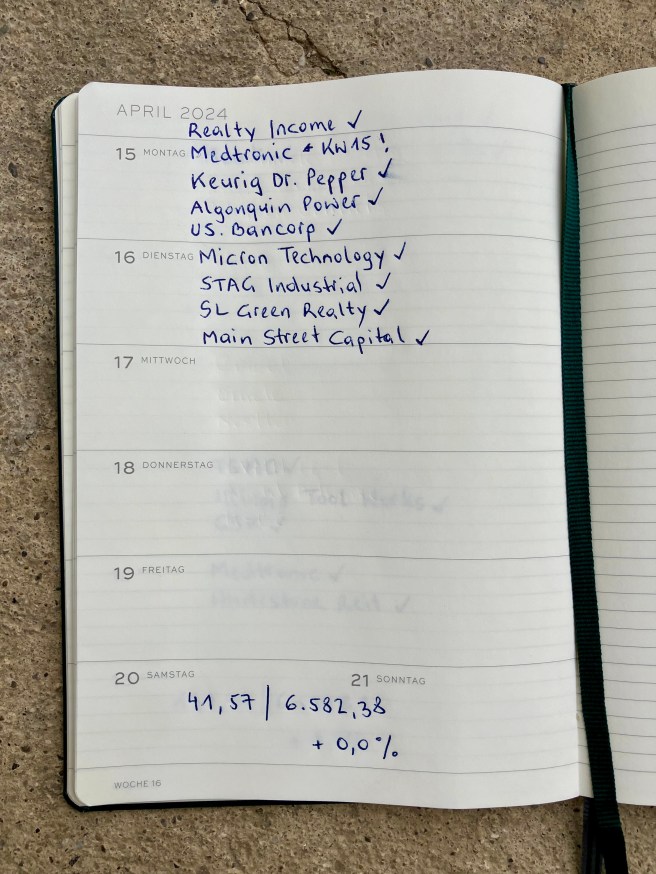 APRIL 2024
Realty Income ✓
15 MONTAG Medtronic → KW15!
Keurig Dr. Pepper ✓
Algonquin Power ✓
US. Bancorp ✓
16 DIENSTAG Micron Technology ✓
STAG Industrial ✓
SL Green Realty ✓
Main Street Capital ✓
17 MITTWOCH
18 DONNERSTAG
19 FREITAG
Medtronic ✓
20 SAMSTAG 21 SONNTAG
41,57 | 6.582,38
+ 0,0%
WOCHE 16